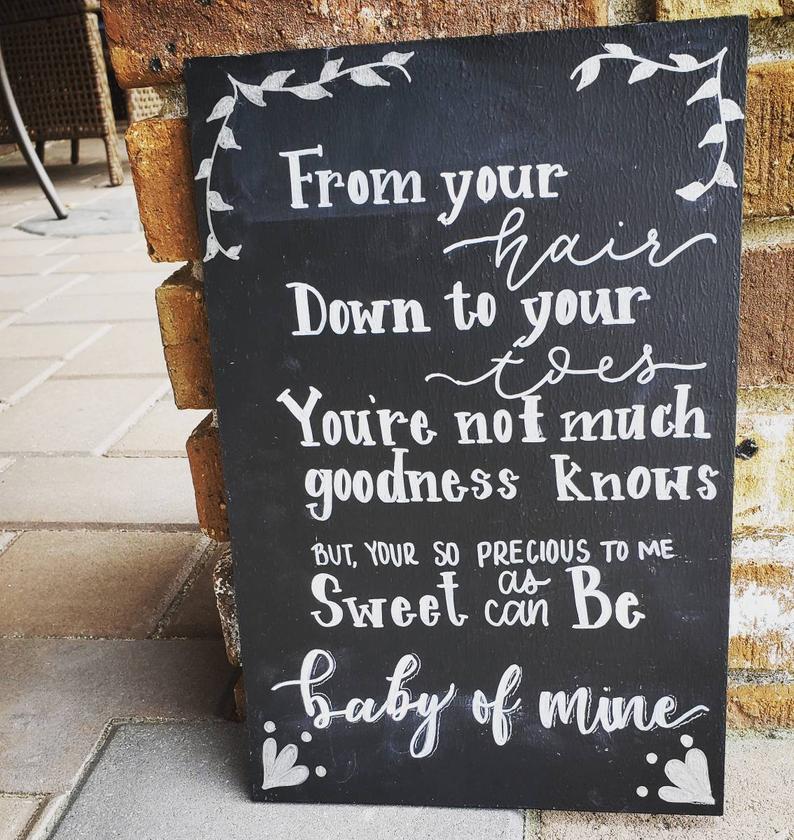 From your
hair
Down to your
toes
You're not much
goodness knows
BUT, YOUR SO PRECIOUS TO ME
Sweet as can Be
baby of mine